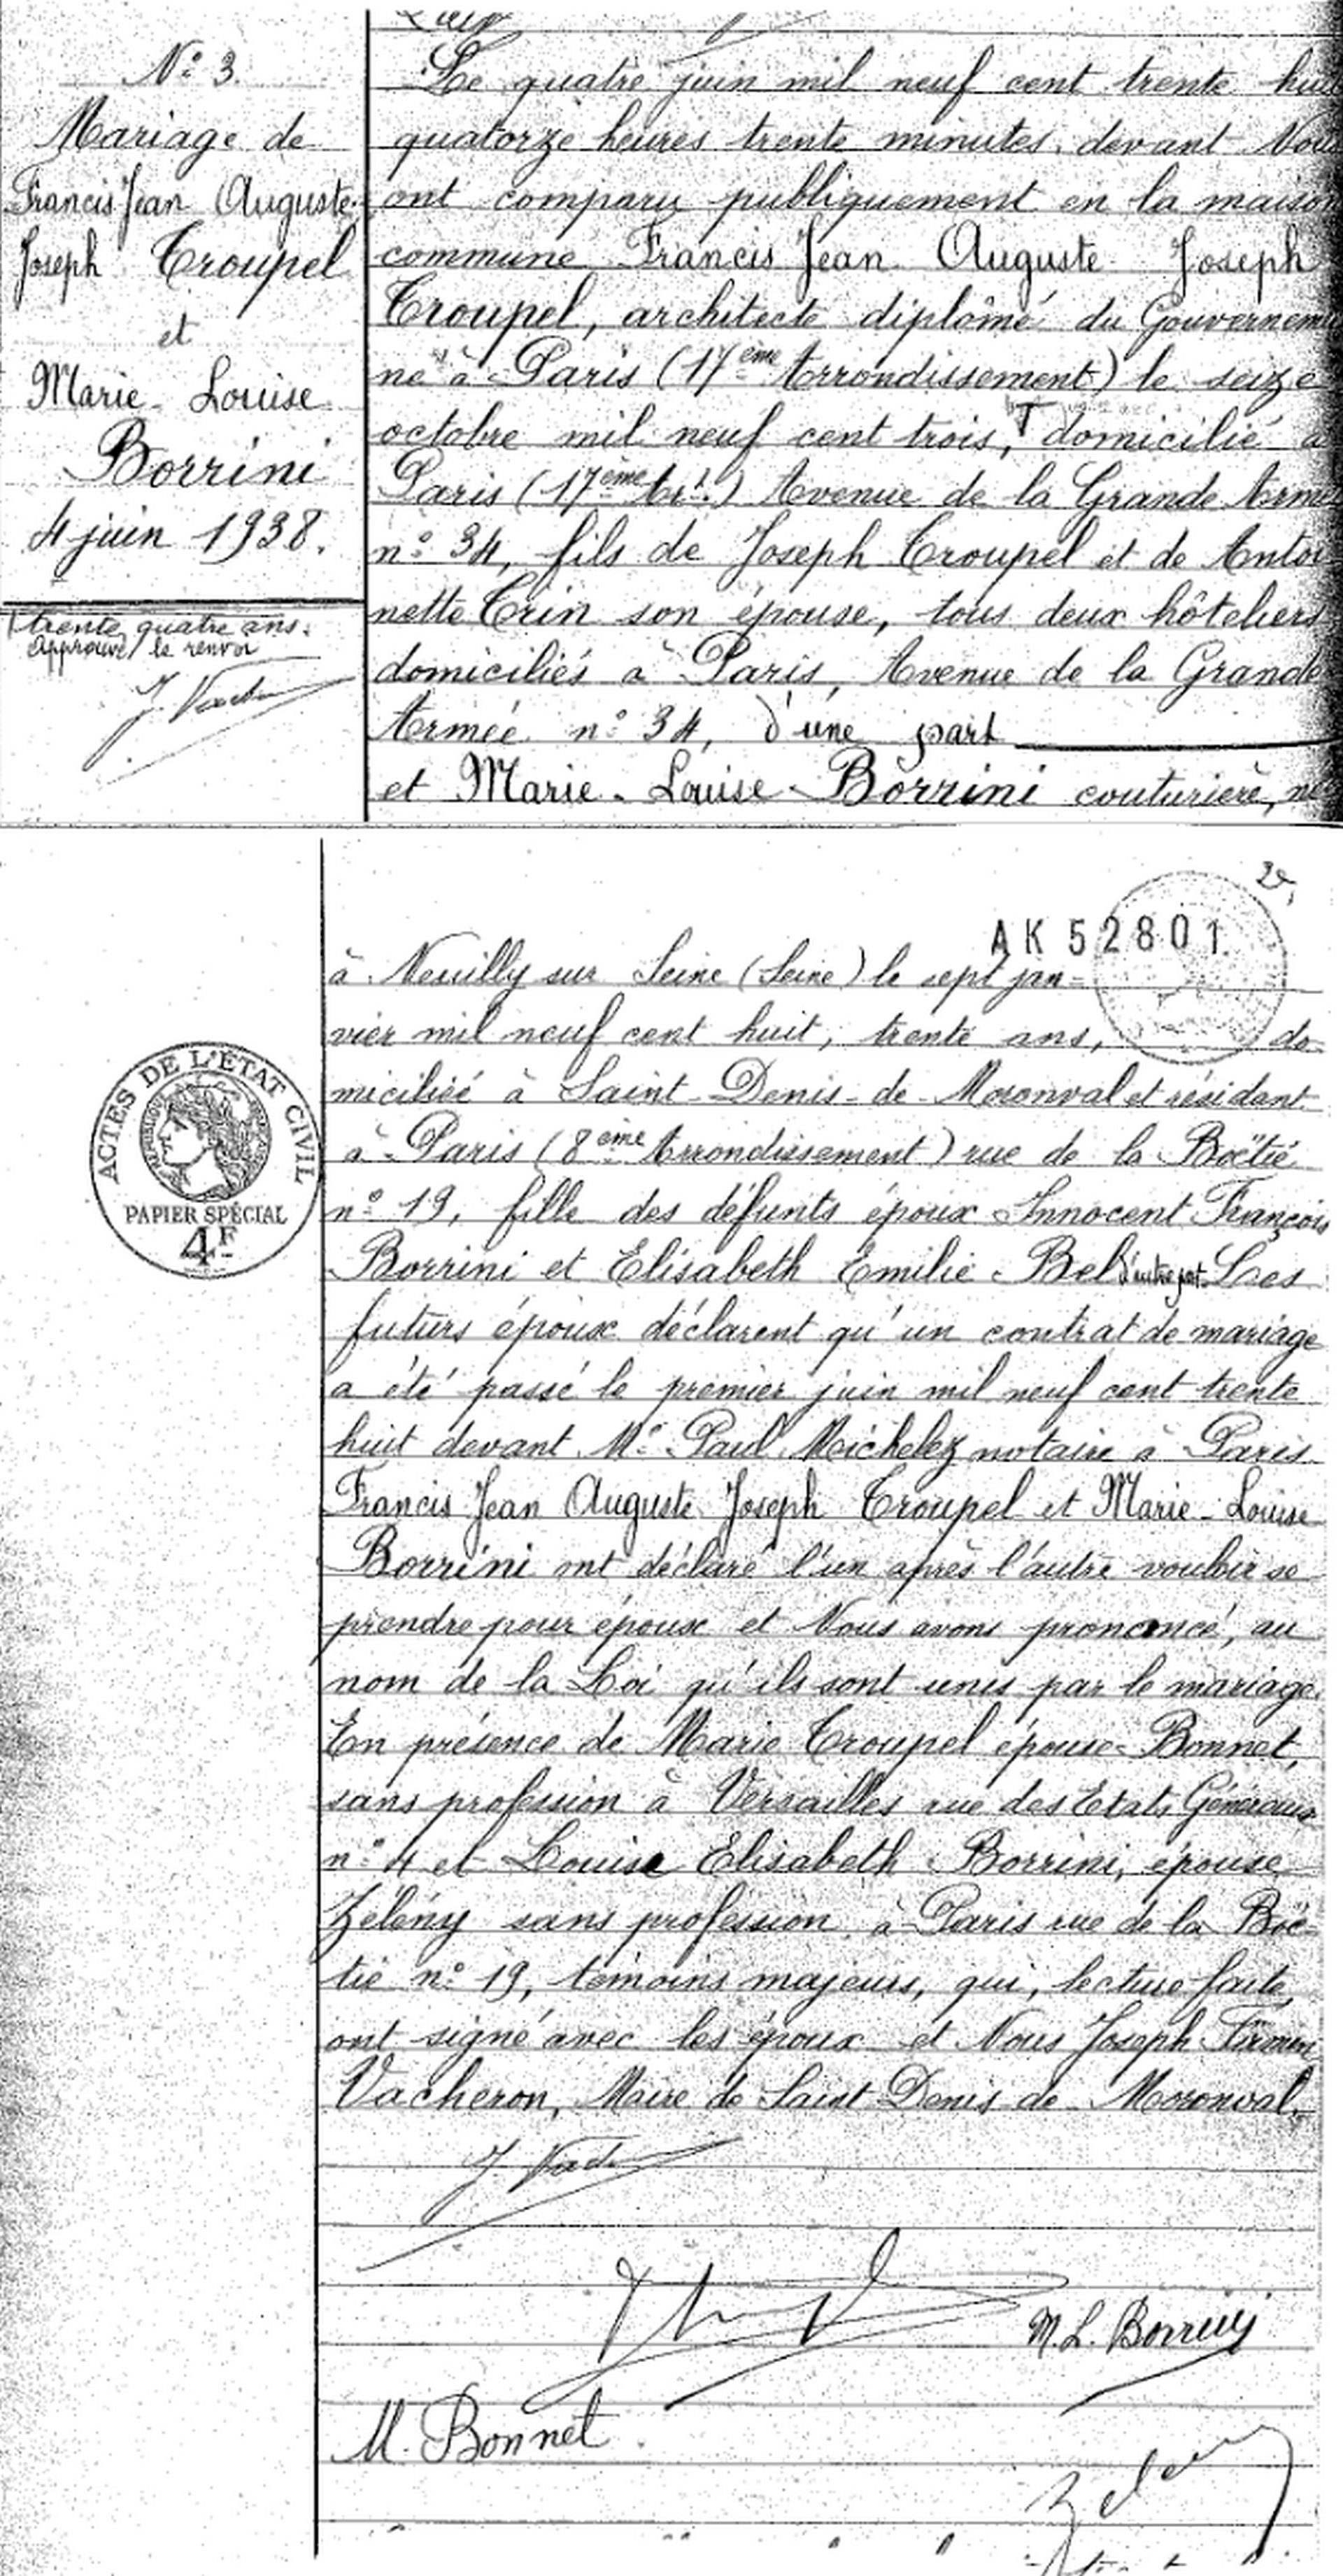 N° 3.
Mariage de
Francis Jean Auguste
Joseph Troupel
et
Marie-Louise
Borrini
4 juin 1938.
T trente quatre ans.
Approuvé le renvoi
J. Vach
Le quatre juin mil neuf cent trente hui
quatorze heures trente minutes, devant Nous
ont comparu publiquement en la maison
commune Francis Jean Auguste Joseph
Troupel, architecte diplômé du Gouverneme
né à Paris (17ème Arrondissement) le seize
octobre mil neuf cent trois, T domicilié à
Paris (17ème Art.) Avenue de la Grande Armé
n° 34, fils de Joseph Troupel et de Antoi
nette Crin son épouse, tous deux hôteliers
domiciliés à Paris, Avenue de la Grande
Armée n° 34, d'une part
et Marie-Louise Borrini couturière, né
AK 52801
à Neuilly sur Seine (Seine) le sept jan-
vier mil neuf cent huit, trente ans, do
miciliée à Saint-Denis-de-Moronval et résidant
à Paris (8ème Arrondissement) rue de la Boëtie
n° 19, fille des défunts époux Innocent François
Borrini et Elisabeth Emilie Bel d'autre part Les
futurs époux déclarent qu'un contrat de mariage
a été passé le premier juin mil neuf cent trente
huit devant Me Paul Michelez notaire à Paris.
Francis Jean Auguste Joseph Troupel et Marie-Louise
Borrini ont déclaré l'un après l'autre vouloir se
prendre pour époux et Nous avons prononcé, au
nom de la Loi qu'ils sont unis par le mariage.
En présence de Marie Troupel épouse Bonnet,
sans profession à Versailles rue des Etats Généraux
n° 4 et Louise Elisabeth Borrini, épouse
Zélény sans profession à Paris rue de la Boë-
tie n° 19, témoins majeurs, qui, lecture faite,
ont signé avec les époux et Nous Joseph Firmin
Vacheron, Maire de Saint Denis de Moronval.
ACTES DE L'ÉTAT CIVIL
RÉPUBLIQUE FRANÇAISE
PAPIER SPÉCIAL
4F
J. Vach
M. L. Borrini
M. Bonnet